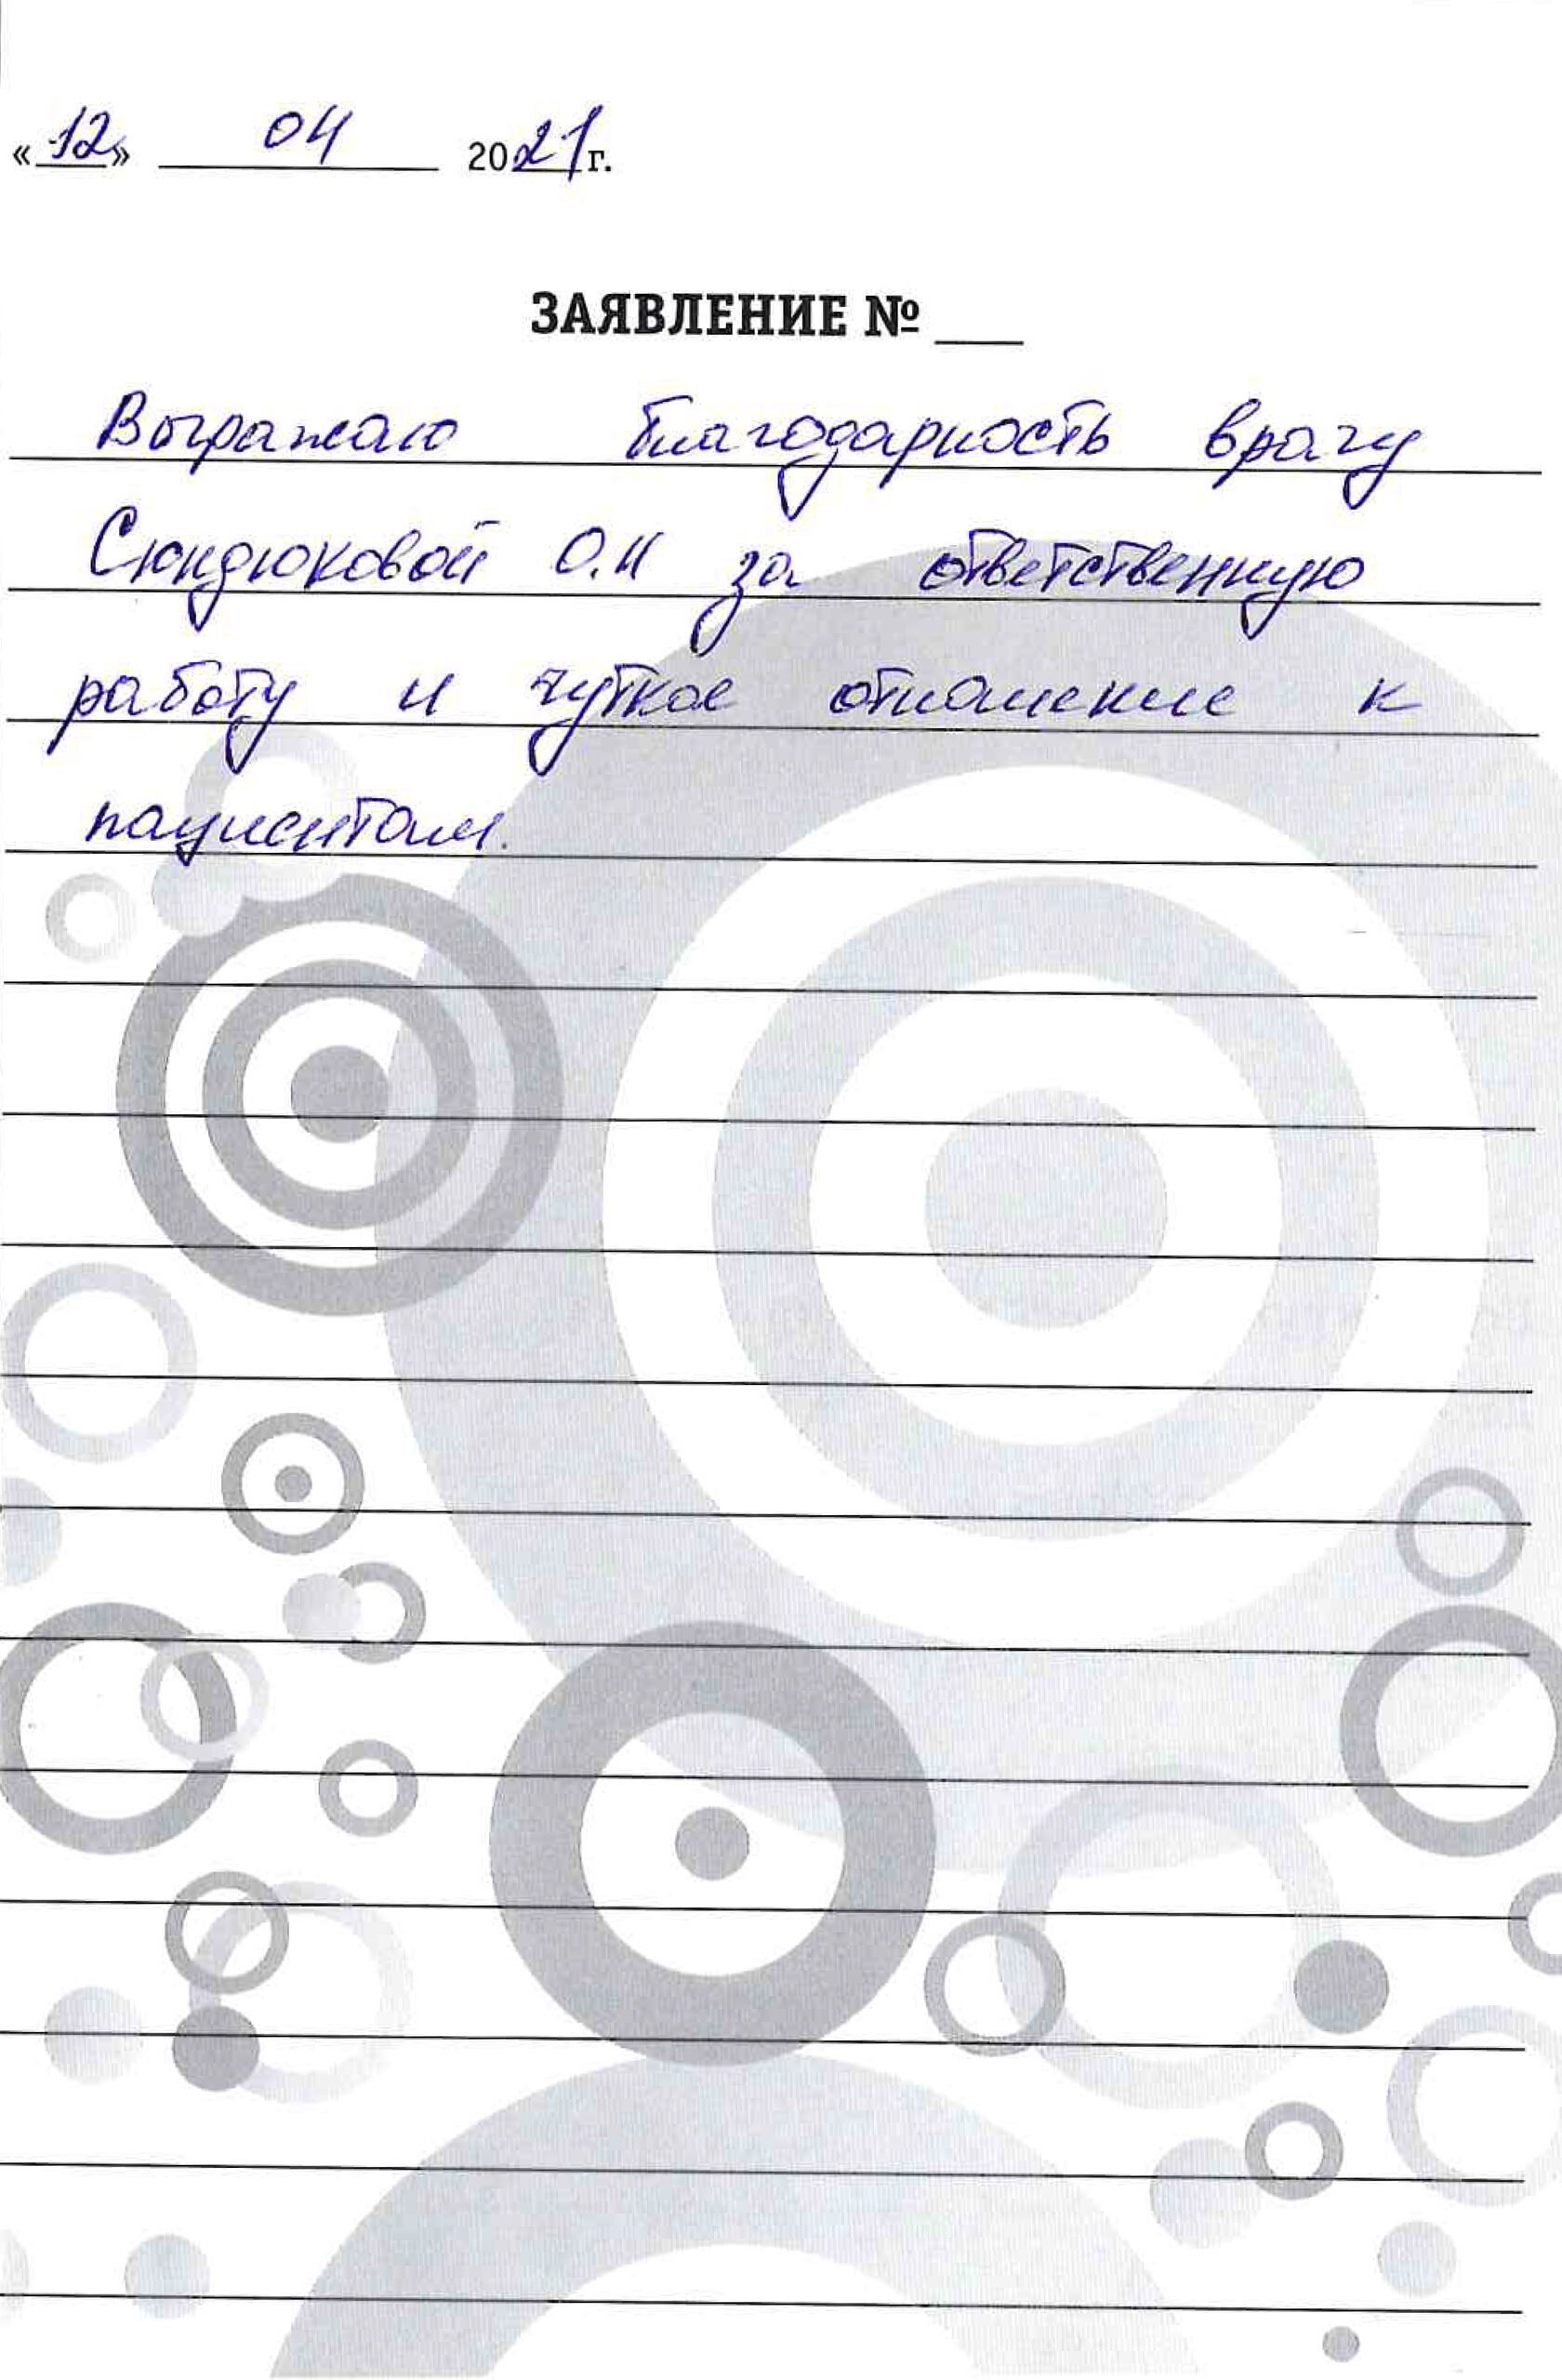 «12» 04 2021г.
ЗАЯВЛЕНИЕ № ___
Выражаю благодарность врачу
Сюндюковой О.Н за ответственную
работу и чуткое отношение к
пациентам.